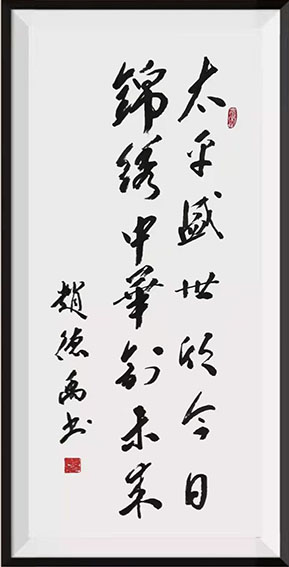 太平盛世欣今日
錦綉中華創未来
趙德禹书